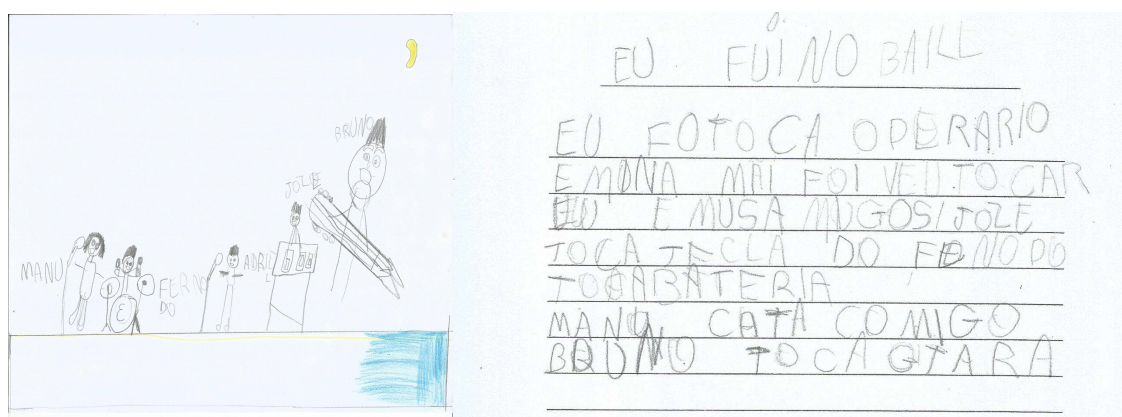 BRUNO
JOZÉE
MANU
FERNO
DO
ADRIE
L
E
EU FUI NO BAILL
EU FOTOCA OPERARIO
E MINA MÃI FOI VEU TOCAR
EU E MUSA MUGOS/JOZE
TOCA TECLA DO FENODO
TOCABATERIA
MANU CATA COMIGO
BRUNO TOCA GTARA